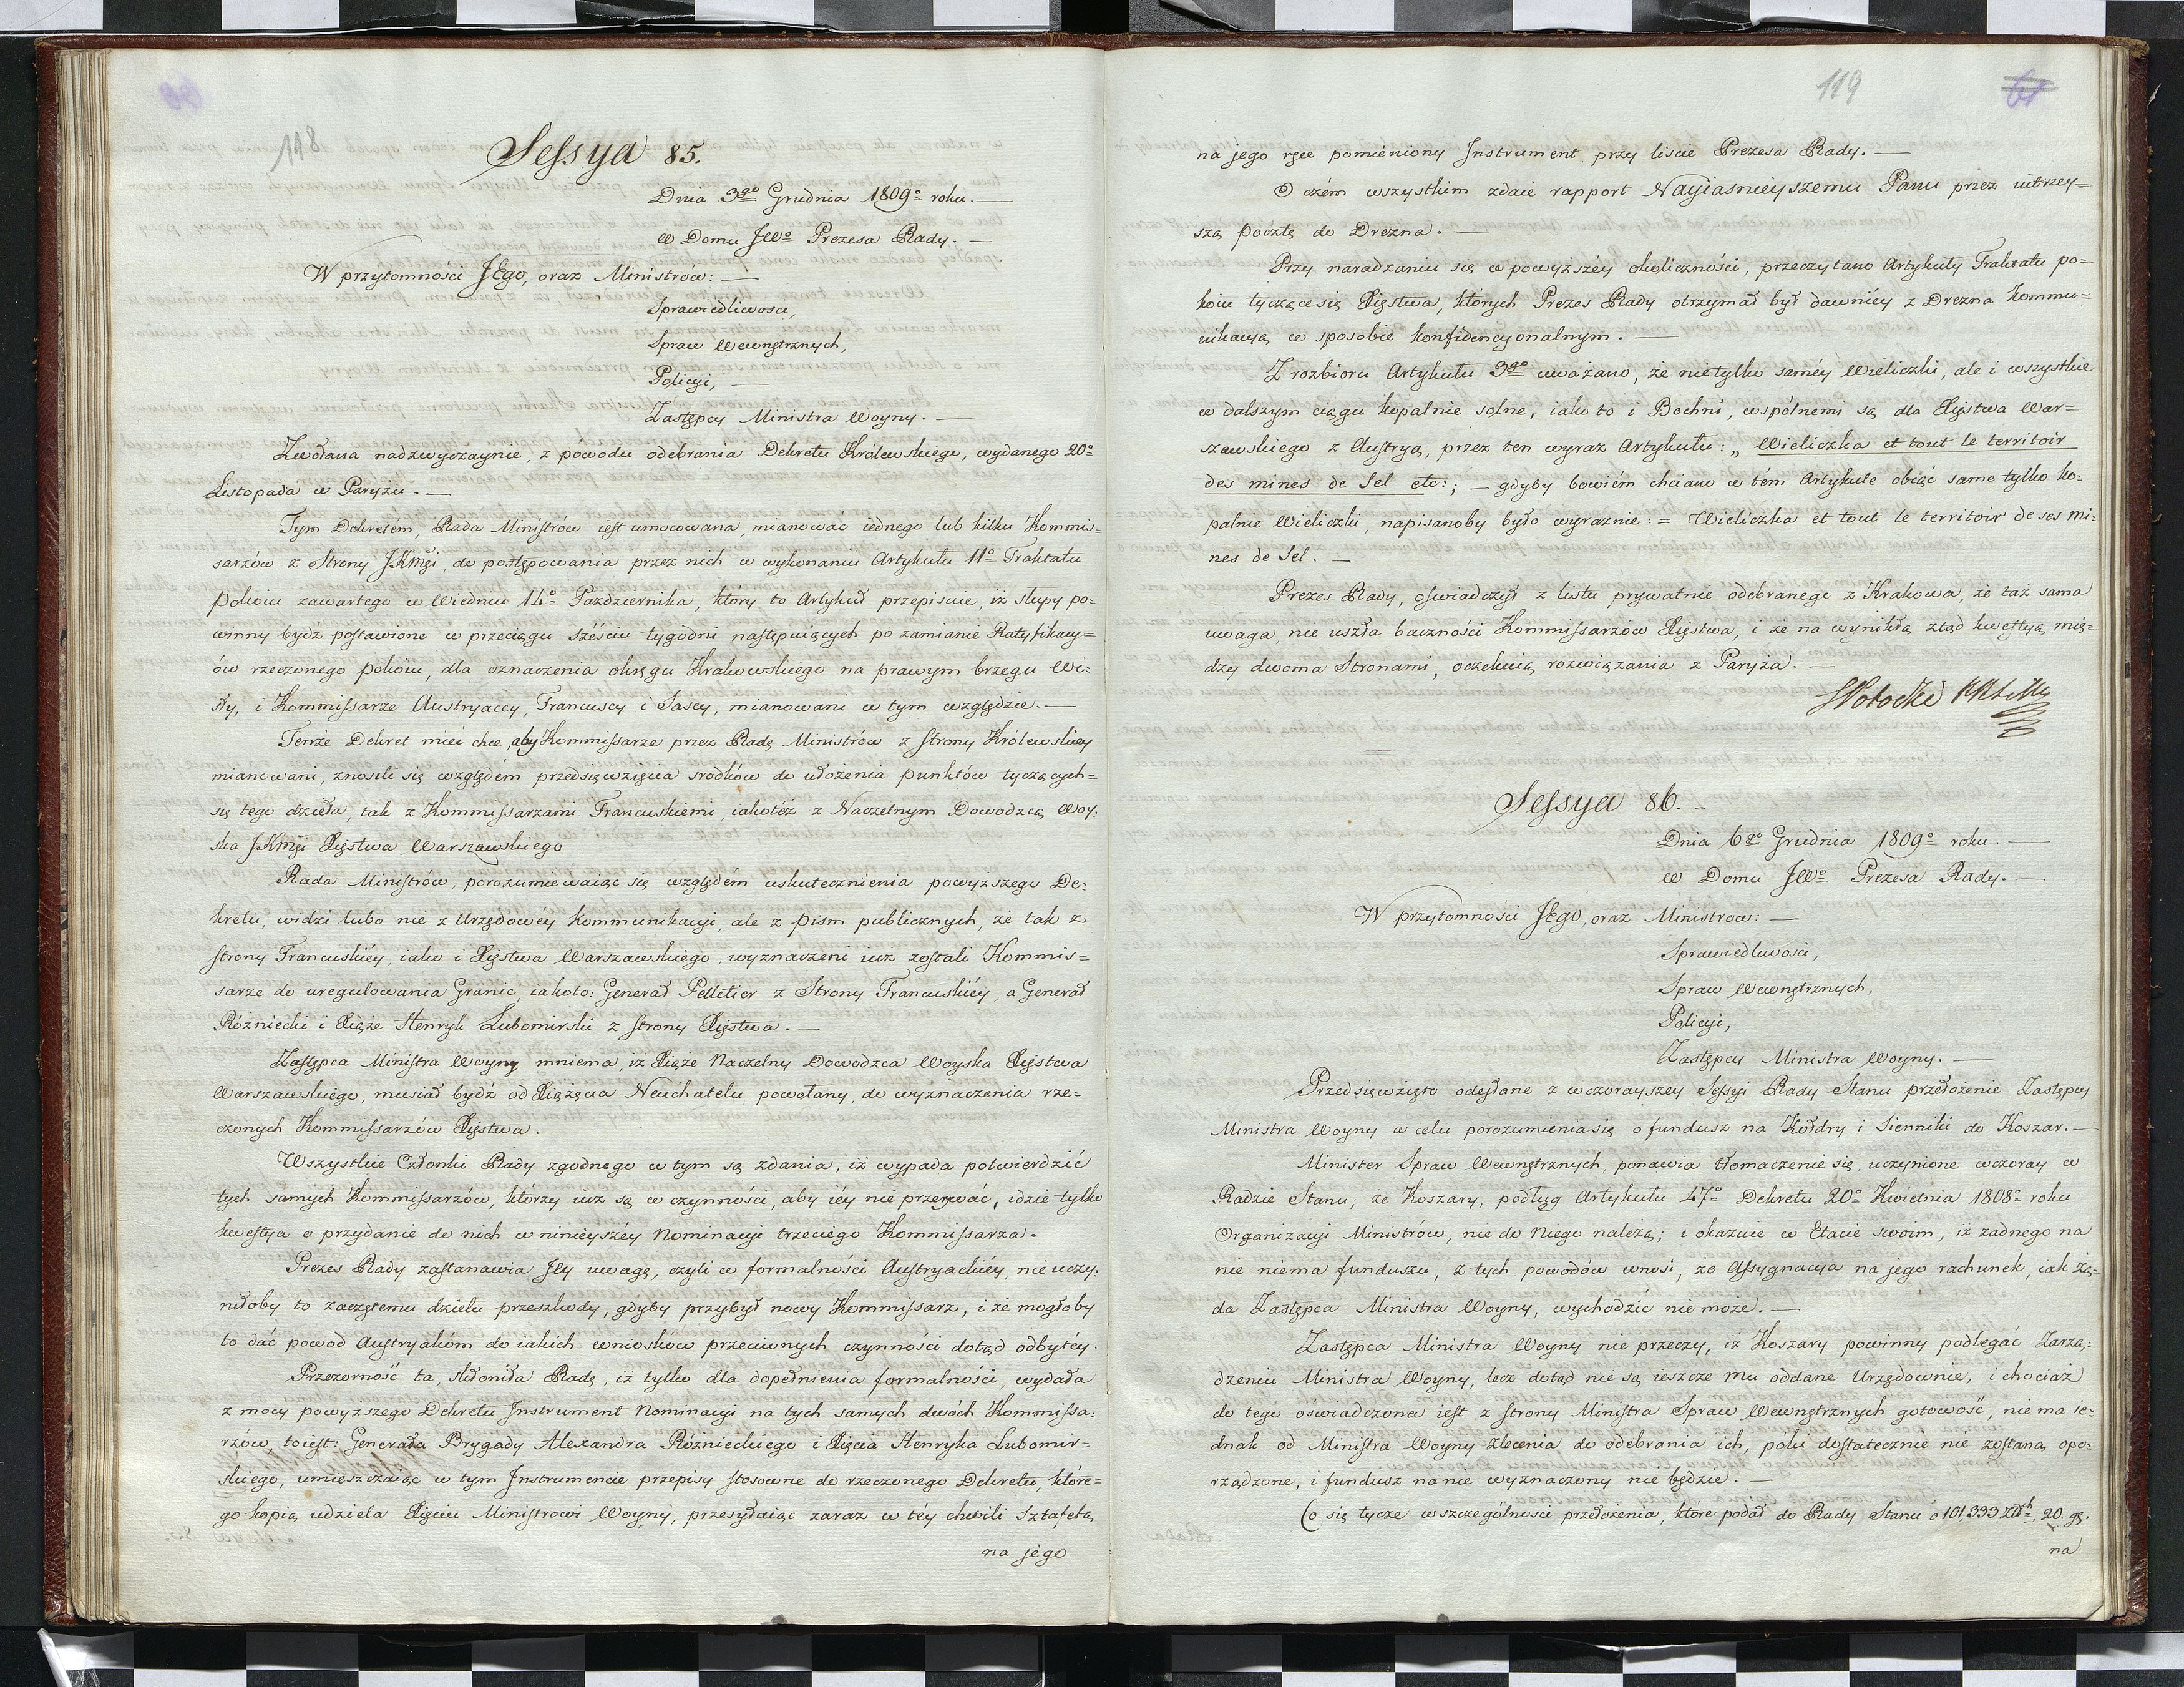 118
Sessya 85.
Dnia 3go Grudnia 1809o roku. —
w Domu JWo Prezesa Rady. —
W przytomności JEgo, oraz Ministrów: —
Sprawiedliwosci,
Spraw Wewnętrznych,
Policyi, —
Zastępcy Ministra Woyny. —
Zwołana nadzwyczaynie, z powodu odebrania Dekretu Królewskiego, wydanego 20o
Listopada w Paryżu. —
Tym Dekretem, Rada Ministrów iest umocowana, mianować iednego lub kilku Kommis=
sarzów z Strony JKMci, do postępowania przez nich w wykonaniu Artykułu 11o Traktatu
Pokoiu zawartego w Wiedniu 14o Pazdziernika, który to Artykuł przepisuie, iż słupy po=
winny bydź postawione w przeciągu sześciu tygodni następuiących po zamianie Ratyfikacy=
ów rzeczonego pokoiu, dla oznaczenia okręgu Krakowskiego na prawym brzegu Wi=
sły, i Kommissarze Austryaccy, Francuscy i Sascy, mianowani w tym względzie. —
Tenże Dekret mieć chce, aby Kommissarze przez Radę Ministrów z Strony Królewskiey
mianowani, znosili się względem przedsięwzięcia srodków do ułożenia punktów tyczących=
się tego dzieła, tak z Kommissarzami Francuskiemi, iakotéż z Naczelnym Dowodzcą Woy=
ska JKMci Xięstwa Warszawskiego
Rada Ministrów, porozumiewaiąc się względem uskutecznienia powyższego De=
kretu, widzi lubo nie z Urzędowéy Kommunikacyi, ale z pism publicznych, że tak z
strony Francuskiéy, iako i Xięstwa Warszawskiego, wyznaczeni iuż zostali Kommis=
sarze do uregulowania Granic, iakoto: Generał Pelletier z Strony Francuskiéy, a Generał
Rożniecki i Xiąże Henryk Lubomirski z strony Xięstwa. —
Zastępca Ministra Woyny mniema, iż Xiąże Naczelny Dowodzca Woyska Xięstwa
Warszawskiego, musiał bydź od Xiążęcia Neuchatelu powołany, do wyznaczenia rze=
czonych Kommissarzów Xięstwa.
Wszystkie Członki Rady zgodnego w tym są zdania, iż wypada potwierdzić
tych samych Kommissarzów, którzy iuż są w czynności, aby iéy nie przerywać, idzie tylko
kwestya o przydanie do nich w ninieyszéy Nominacyi trzeciego Kommissarza.
Prezes Rady zastanawia Jey uwagę, czyli w formalności Austryackiéy, nie uczy=
niłoby to zaczętemu dziełu przeszkody, gdyby przybył nowy Kommissarz, i że mogłoby
to dać powod Austryakóm do iakich wniosków przeciwnych czynności dotąd odbytéy.
Przezorność ta, skłoniła Radę, iż tylko dla dopełnienia formalności, wydała
z mocy powyższego Dekretu Instrument Nominacyi na tych samych dwóch Kommissa=
rzów, toiest: Generała Brygady Alexandra Rożnieckiego i Xięcia Henryka Lubomir=
skiego, umieszczaiąc w tym Instrumencie przepisy stosowne do rzeczonego Dekretu, które=
go kopią udziela Xięciu Ministrowi Woyny, przesyłaiąc zaraz w téy chwili Sztafetą
na jego
119
61
na jego ręce pomieniony Instrument, przy liscie Prezesa Rady. —
O czém wszystkim zdaie rapport Nayiasnieyszemu Panu przez iutrzey=
szą pocztę do Drezna. —
Przy naradzaniu się w powyższéy okoliczności, przeczytano Artykuły Traktatu po=
koiu tyczące się Xięstwa, których Prezes Rady otrzymał był dawniéy z Drezna kommu=
nikacyą w sposobie konfidencyonalnym. —
Z rozbioru Artykułu 3go uważano, że nietylko saméy Wieliczki, ale i wszystkie
w dalszym ciągu kopalnie solne, iako to i Bochni, wspólnemi są dla Xięstwa War=
szawskiego z Austryą, przez ten wyraz Artykułu: „ Wieliczka et tout le territoir
des mines de Sel etc: ; — gdyby bowiém chciano w tém Artykule obiąć same tylko ko=
palnie Wieliczki, napisanoby było wyraznie: = Wieliczka et tout le territoir de ses mi=
nes de Sel. —
Prezes Rady, oswiadczył z listu prywatnie odebranego z Krakowa, że taż sama
uwaga, nie uszła baczności Kommissarzów Xięstwa, i że na wynikłą ztąd kwestyą mię=
dzy dwoma Stronami, oczekuią rozwiązania z Paryża. —
SPotocki
Sessya 86. —
Dnia 6go Grudnia 1809o roku. —
w Domu JWo Prezesa Rady. —
W przytomności JEgo, oraz Ministrow: —
Sprawiedliwosci,
Spraw Wewnętrznych,
Policyi,
Zastępcy Ministra Woyny. —
Przedsięwzięto odesłane z wczorayszey Sessyi Rady Stanu przełożenie Zastępcy
Ministra Woyny w celu porozumienia się o fundusz na Kołdry i Sienniki do Koszar. —
Minister Spraw Wewnętrznych, ponawia tłomaczenie się, uczynione wczoray w
Radzie Stanu; że Koszary, podług Artykułu 47o Dekretu 20o Kwietnia 1808o roku
Organizacyi Ministrów, nie do Niego należą; i okazuie w Etacie swoim, iż żadnego na
nie niema funduszu, z tych powodów wnosi, że Assygnacya na jego rachunek, iak żą=
da Zastępca Ministra Woyny, wychodzić nie może. —
Zastępca Ministra Woyny nie przeczy, iż Koszary powinny podlegać Zarzą=
dzeniu Ministra Woyny, lecz dotąd nie są ieszcze mu oddane Urzędownie, i chociaż
do tego oświadczona iest z strony Ministra Spraw Wewnętrznych gotowość, nie ma ie=
dnak od Ministra Woyny zlecenia do odebrania ich, póki dostatecznie nie zostaną opo=
rządzone, i fundusz na nie wyznaczony nie będzie. —
Co się tycze w szczegolności przełożenia, które podał do Rady Stanu o 101,333 Złch, 20. gr.
na